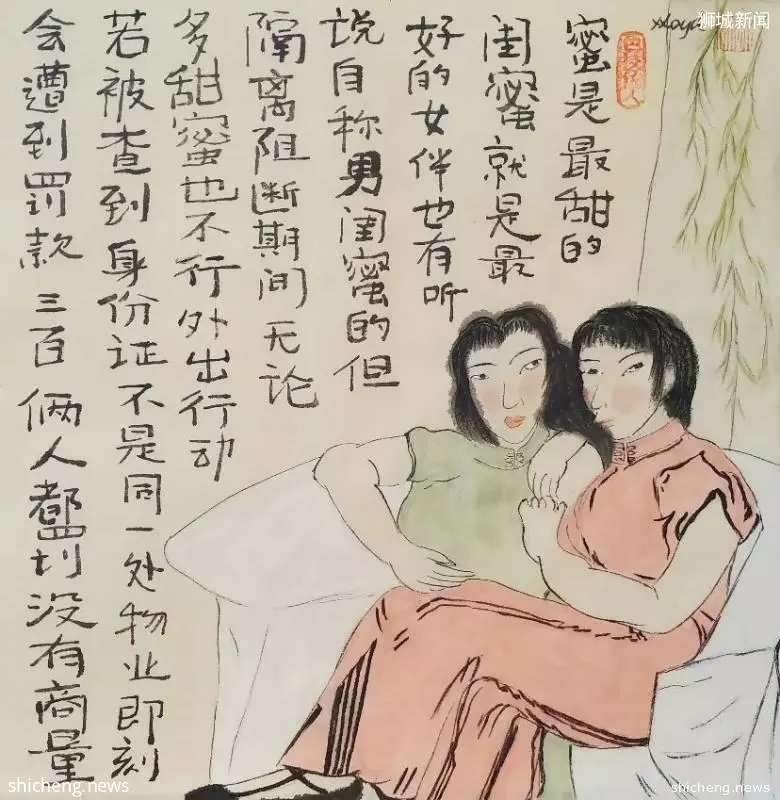 狮城新闻
蜜是最甜的
闺蜜就是最
好的女伴也有听
说自称男闺蜜的但
隔离阻断期间无论
多甜蜜也不行外出行动
若被查到身份证不是同一处物业即刻
会遭到罚款三百俩人都罚没有商量
shicheng.news
shicheng.news